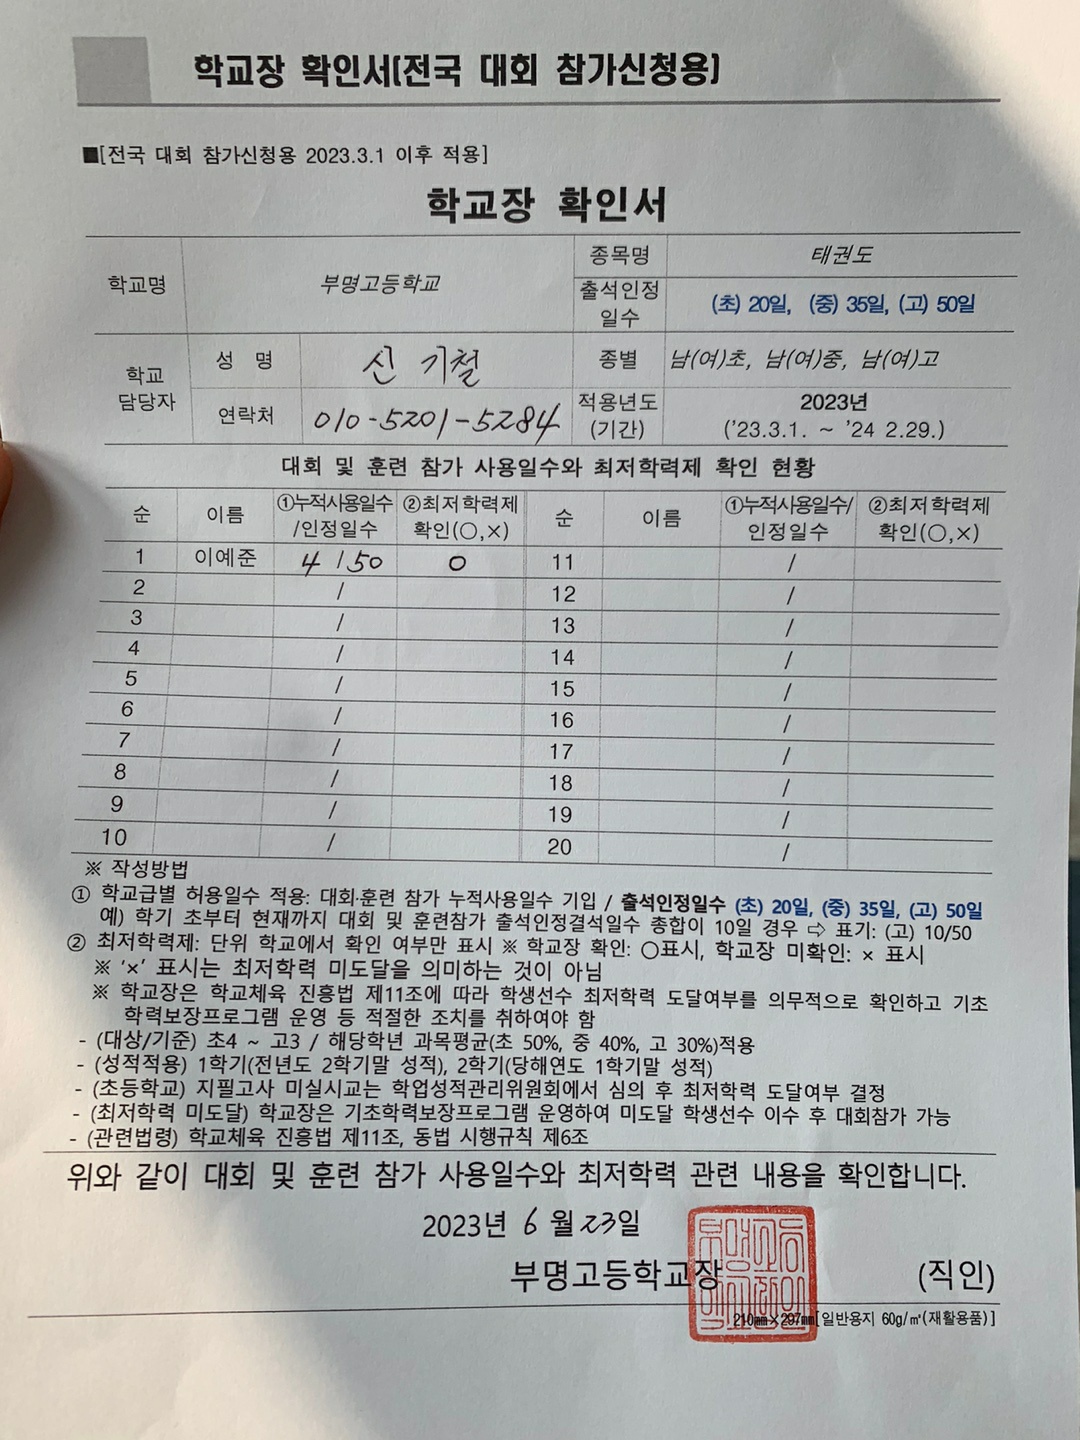 학교장 확인서(전국 대회 참가신청용)
■[전국 대회 참가신청용 2023.3.1 이후 적용]
학교장 확인서
학교명 부명고등학교 종목명 태권도
출석인정 일수 (초) 20일, (중) 35일, (고) 50일
학교 담당자 성 명 신 기철 종별 남(여)초, 남(여)중, 남(여)고
연락처 010-5201-5284 적용년도 (기간) 2023년 ('23.3.1. ~ '24 2.29.)
대회 및 훈련 참가 사용일수와 최저학력제 확인 현황
순 이름 ①누적사용일수/인정일수 ②최저학력제 확인(○,×) 순 이름 ①누적사용일수/인정일수 ②최저학력제 확인(○,×)
1 이예준 4 / 50 O 11 /
2 / 12 /
3 / 13 /
4 / 14 /
5 / 15 /
6 / 16 /
7 / 17 /
8 / 18 /
9 / 19 /
10 / 20 /
※ 작성방법
① 학교급별 허용일수 적용: 대회·훈련 참가 누적사용일수 기입 / 출석인정일수 (초) 20일, (중) 35일, (고) 50일
예) 학기 초부터 현재까지 대회 및 훈련참가 출석인정결석일수 총합이 10일 경우 ⇨ 표기: (고) 10/50
② 최저학력제: 단위 학교에서 확인 여부만 표시 ※ 학교장 확인: ○표시, 학교장 미확인: × 표시
※ '×' 표시는 최저학력 미도달을 의미하는 것이 아님
※ 학교장은 학교체육 진흥법 제11조에 따라 학생선수 최저학력 도달여부를 의무적으로 확인하고 기초
학력보장프로그램 운영 등 적절한 조치를 취하여야 함
- (대상/기준) 초4 ~ 고3 / 해당학년 과목평균(초 50%, 중 40%, 고 30%)적용
- (성적적용) 1학기(전년도 2학기말 성적), 2학기(당해연도 1학기말 성적)
- (초등학교) 지필고사 미실시교는 학업성적관리위원회에서 심의 후 최저학력 도달여부 결정
- (최저학력 미도달) 학교장은 기초학력보장프로그램 운영하여 미도달 학생선수 이수 후 대회참가 가능
- (관련법령) 학교체육 진흥법 제11조, 동법 시행규칙 제6조
위와 같이 대회 및 훈련 참가 사용일수와 최저학력 관련 내용을 확인합니다.
2023년 6 월 23일
부명고등학교장 (직인)
210㎜×297㎜[일반용지 60g/㎡(재활용품)]